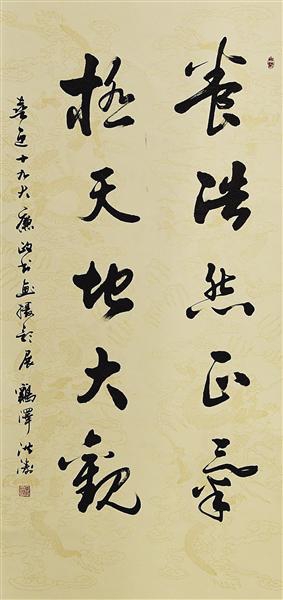 養浩然正氣
極天地大觀
喜迎十九大廉政书画摄影展 鶴澤 洪濤